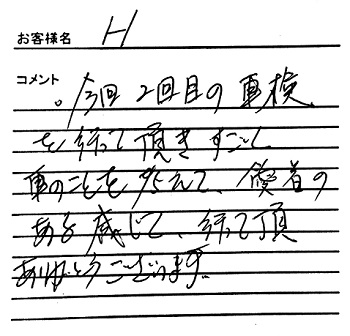 お客様名 H
コメント
。今回2回目の車検
を行って頂きすごく
車のことを考えて、愛着の
ある感じで、行って頂
ありがとうございます。